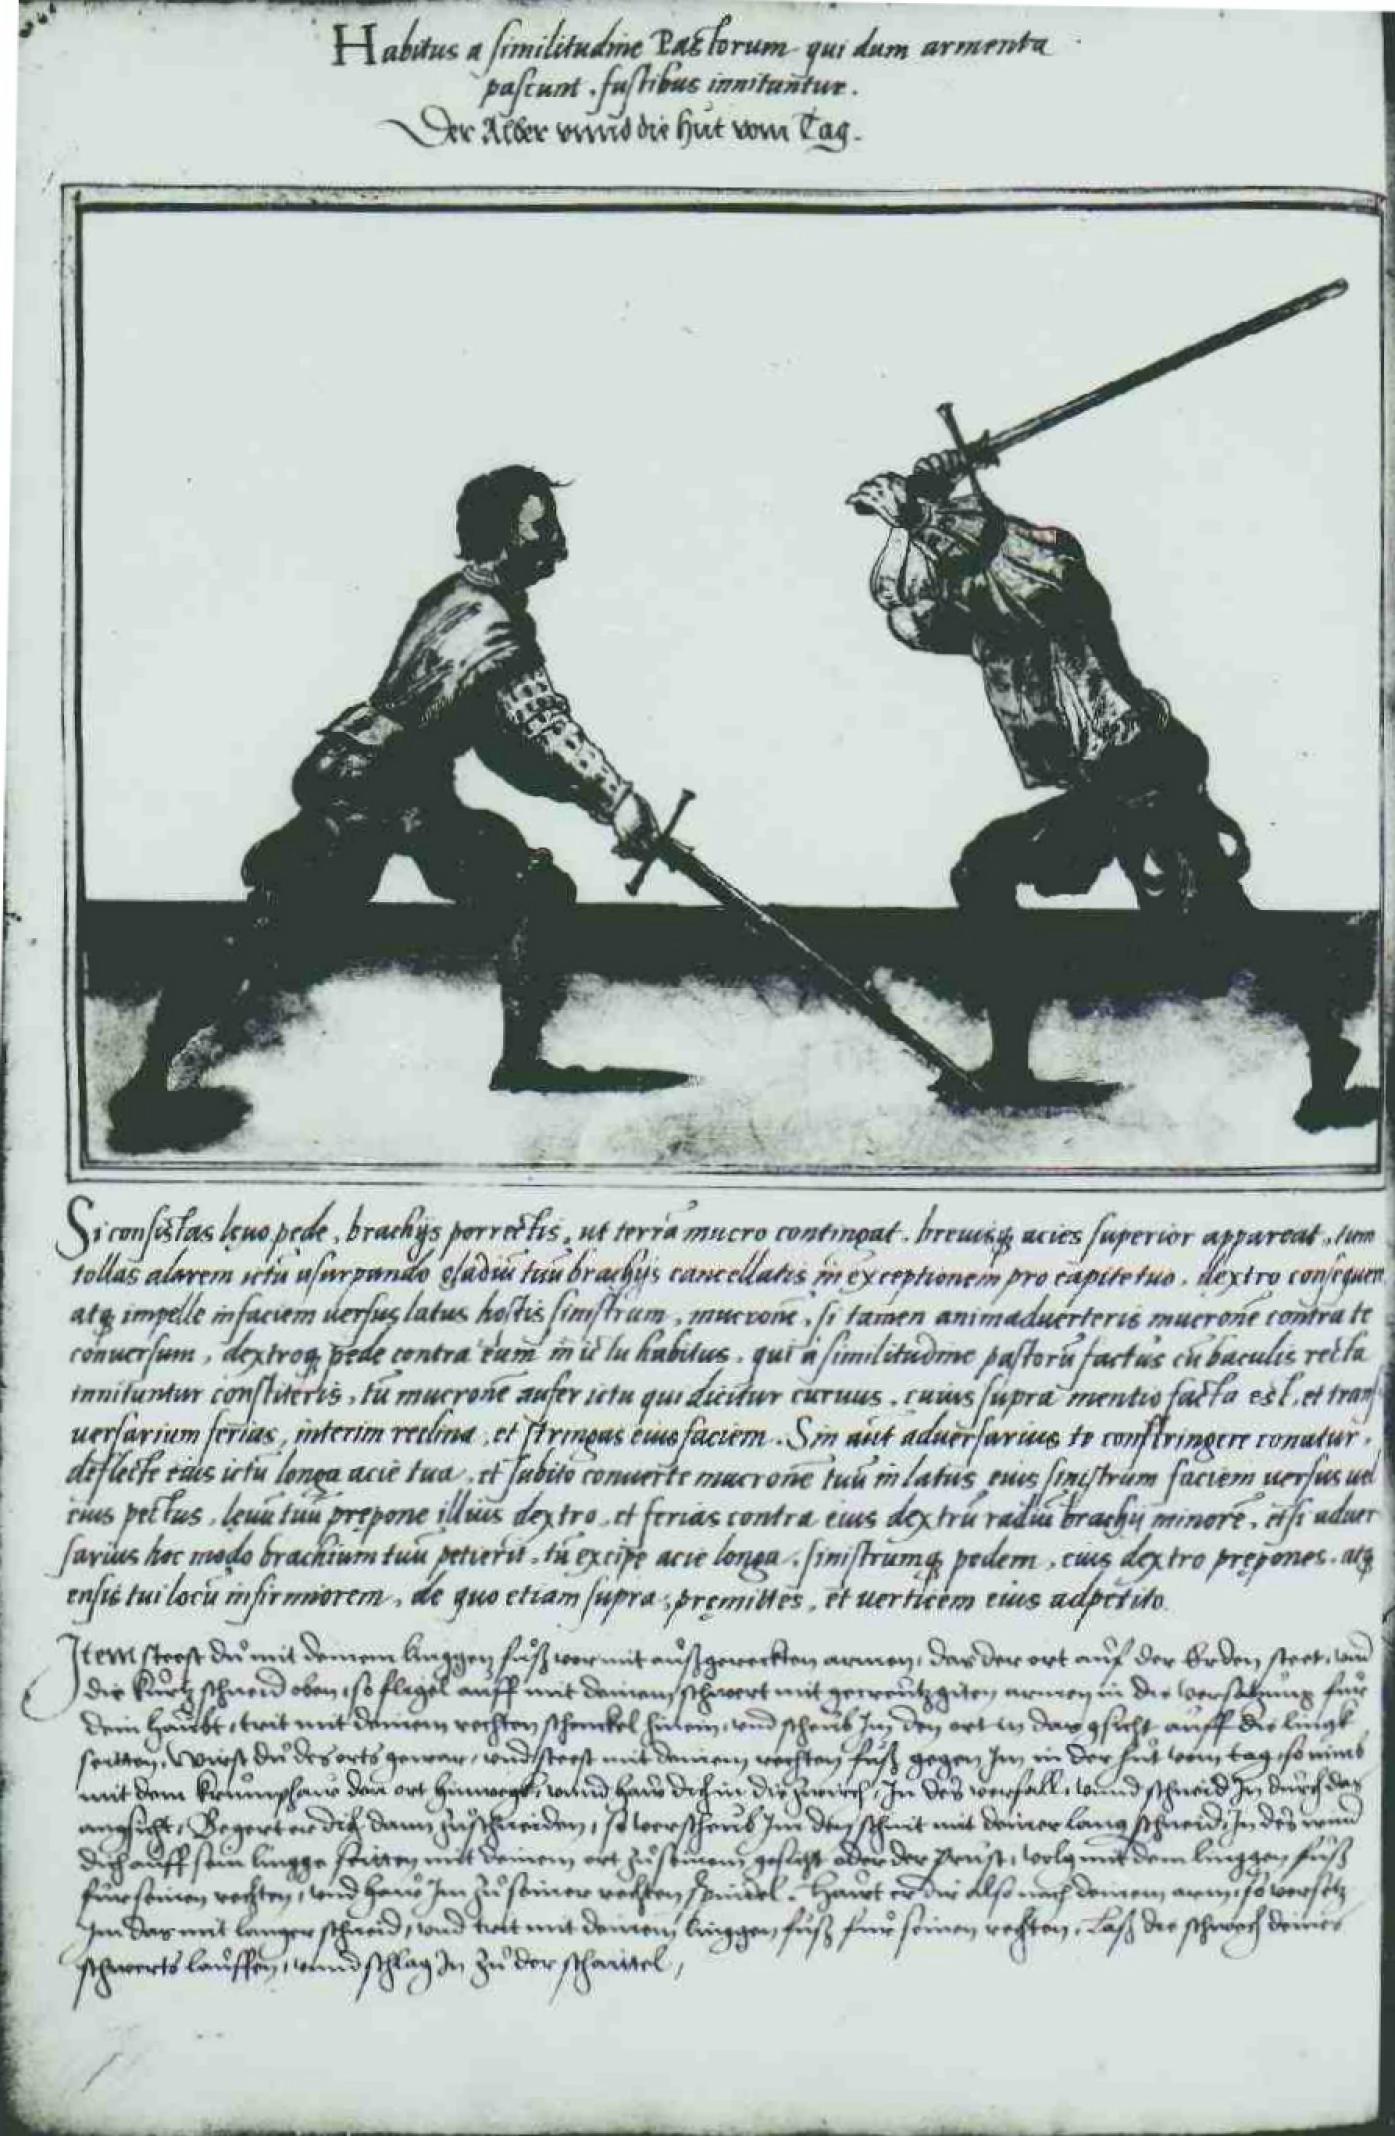 Habitus a similitudine Pastorum qui dum armenta
pascunt, fustibus innituntur.
Der Alber unnd die hut vom Tag.
Si consistas lęuo pede, brachijs porrectis, ut terrã mucro contingat, breuisq́ acies superior appareat, tum
tollas alarem ictũ usurpando gladiũ tuũ brachijs cancellatis in exceptionem pro capite tuo, dextro consequere
atq́ impelle in faciem uersus latus hostis sinistrum, mucronẽ, si tamen animaduerteris mucronẽ contra te
conuersum, dextroq́ pede contra eum in ictu habitus, qui a similitudine pastorũ factus cũ baculis recta
innituntur constiteris, tũ mucronẽ aufer ictu qui dicitur curuus, cuius supra mentio facta est, et trans
uersarium ferias, interim reclina, et stringas eius faciem. Sin aũt aduersarius te constringere conatur,
deflecte eius ictũ longa acie tua, et subito conuerte mucronẽ tuũ in latus eius sinistrum faciem uersus uel
eius pectus, lęuũ tuũ prępone illius dextro, et ferias contra eius dextrũ radiũ brachij minorẽ, et si aduer
sarius hoc modo brachium tuũ petierit, tũ excipe acie longa, sinistrumq́ pedem, eius dextro prępones, atq́
ensis tui locũ infirmiorem, de quo etiam supra, pręmittes, et uerticem eius adpetito.
Item steest dů mit deinem linggen fůß vor mit außgereckten armen, das der ort auf der Erden steet, und
die kurtz schneid oben, so fligel auff mit deinem schwert mit gecreutzgiten armen in die versatzung für
dein haubt, trit mit deinem rechten schenckel hinein, und scheub Im den ort in das gsicht auff die lingk
seitten. Wirst dů des orts gewar, und steest mit deinem rechten fůß gegen Im in der hůt vom tag, so nimb
mit dem krumphaw den ort hinwegk, unnd haw dich in die zwirch, In des verfall, unnd schneid In durch das
angsicht, Begert er dich dann zů schneiden, so verscheub Im den schnit mit deiner lang schneid, In des wend
dich auff sein lingge seitten mit deinem ort zů seinem gesicht oder der Prust, volg mit dem linggen fůß
für seinen rechten, und haw Im zů seiner rechten spindel. Hawt er dir also nach deinem arm, so versetz
Im das mit langer schneid, und trit mit deinem linggen fůß für seinen rechten, Laß die schwech deines
schwerts lauffen, unnd schlag In zů der schaittel,